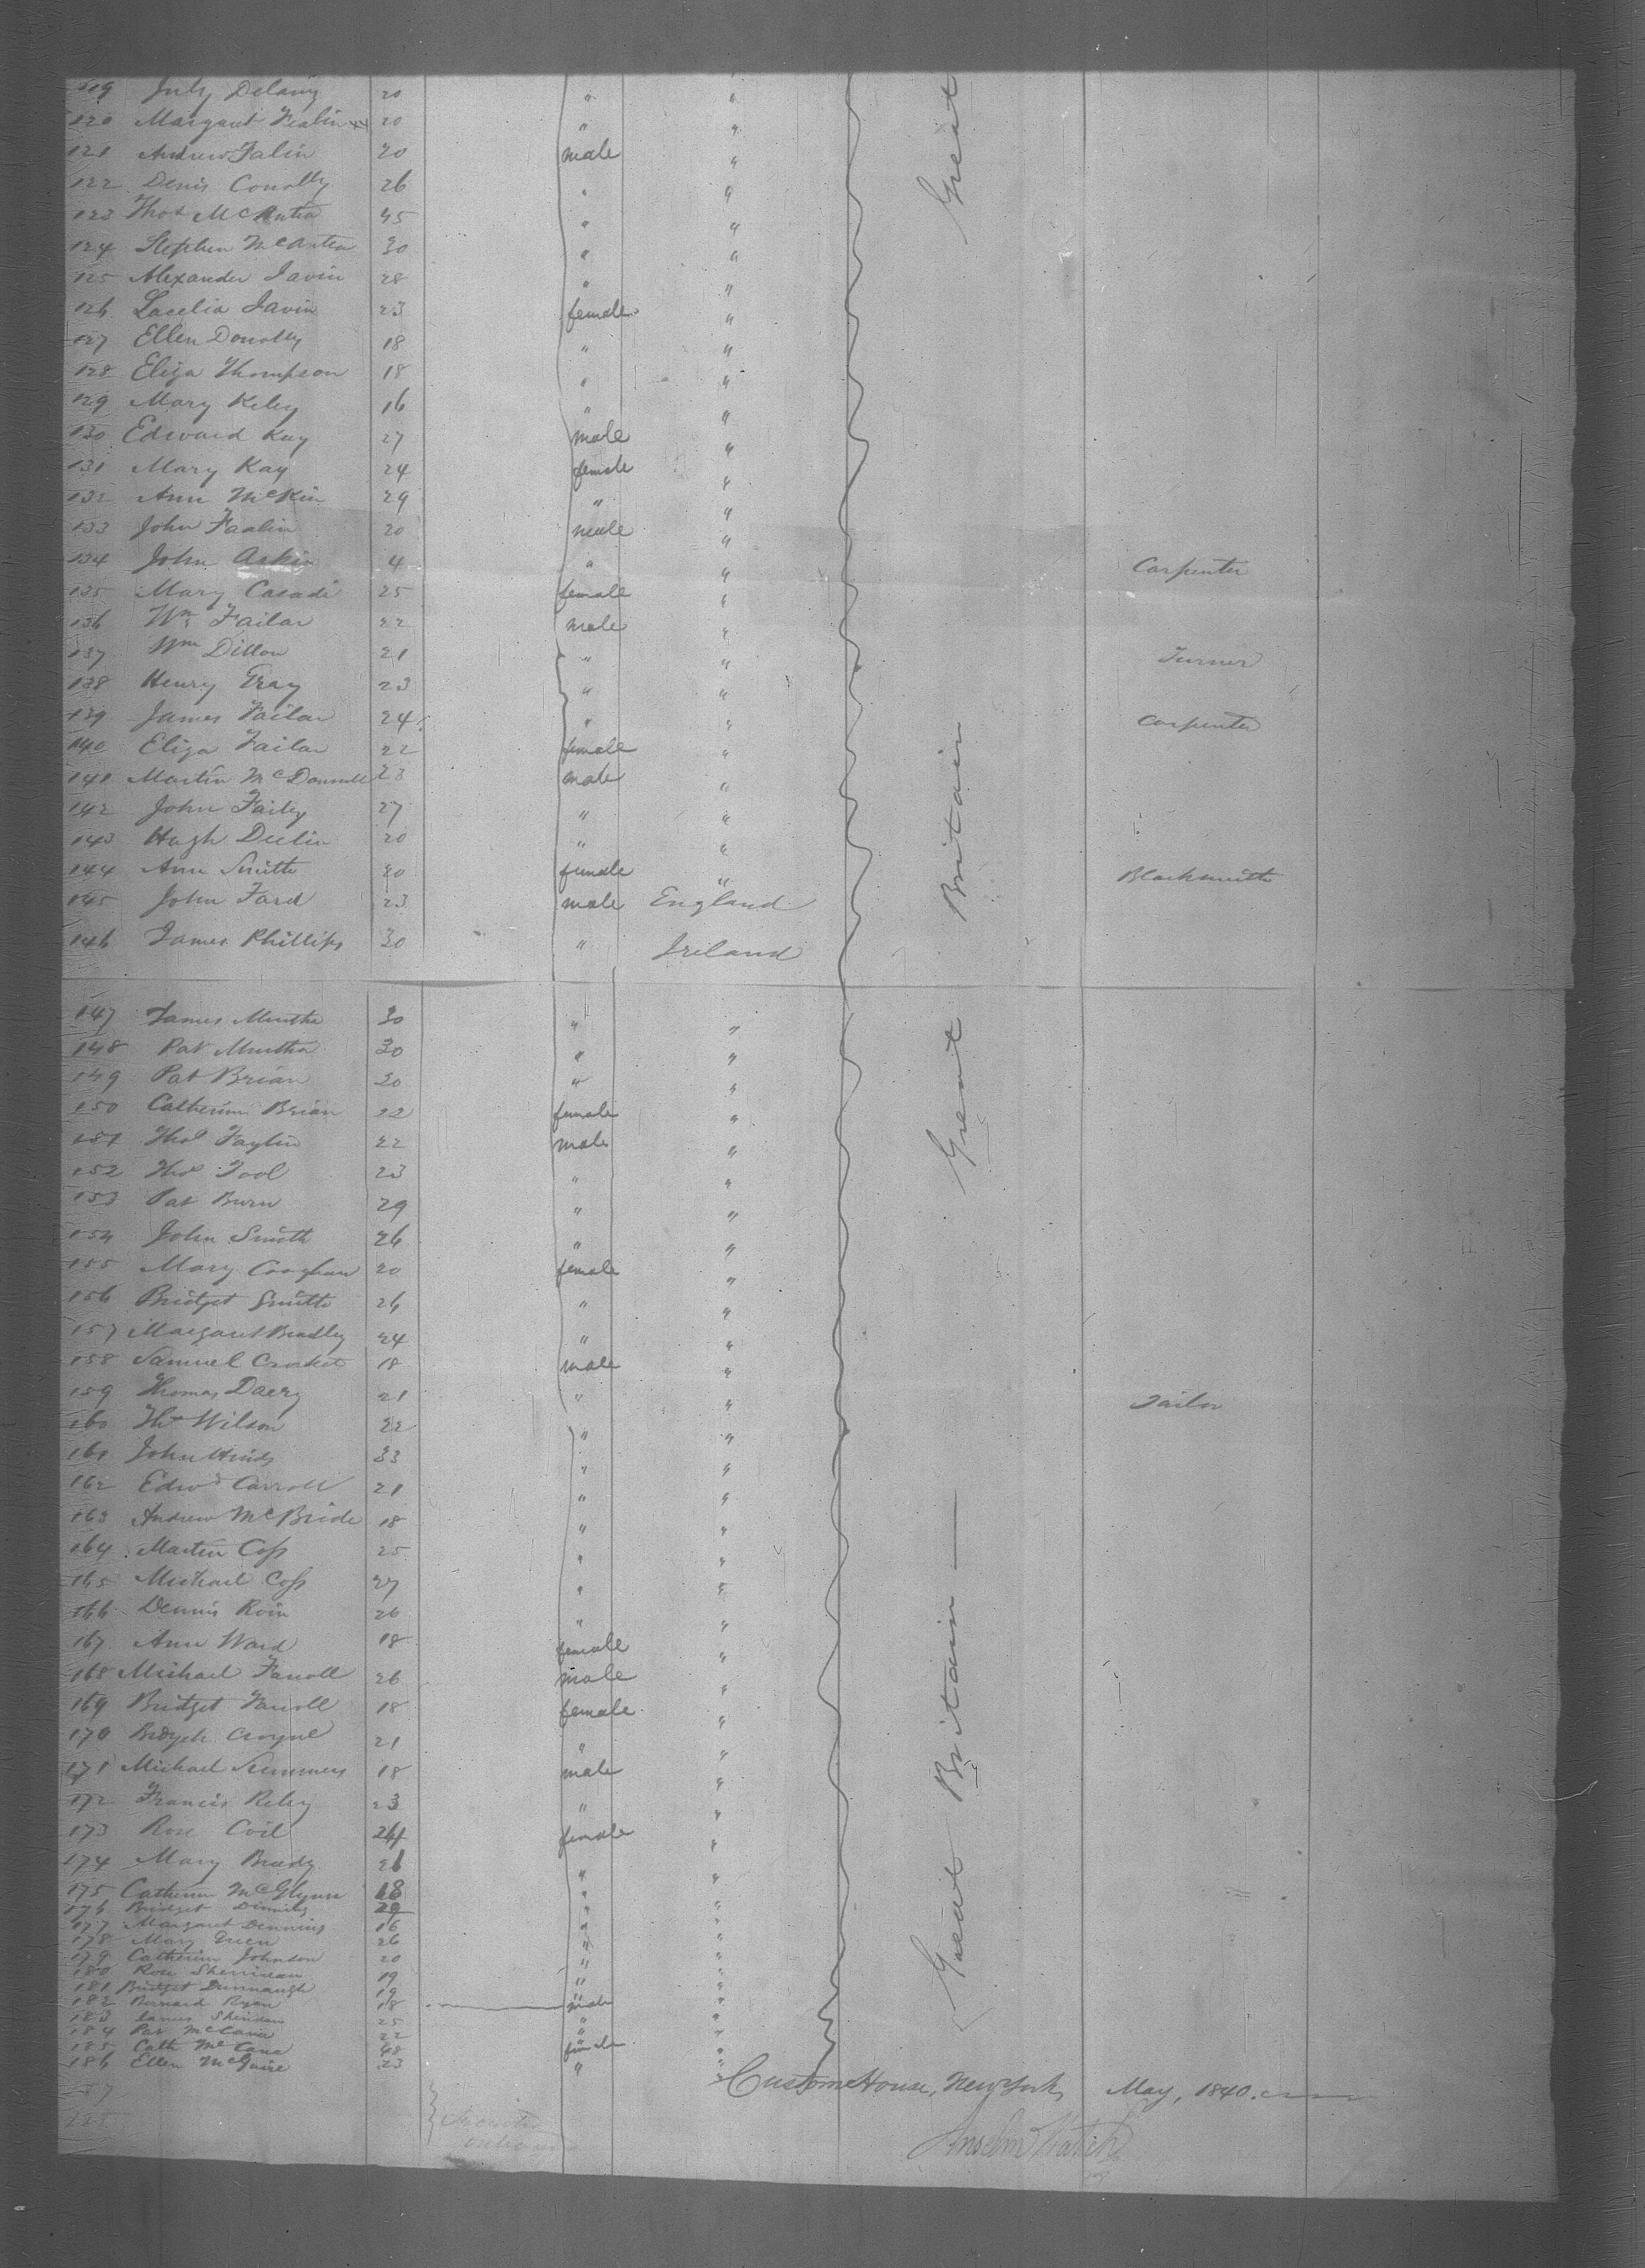 119 July Delany 20 " "
120 Margaret 20 " "
121 Andrew Falin 20 male "
122 Denis Conolly 26 " "
123 Thos McArtea 45 " "
124 Stephen McArtea 30 " "
125 Alexander Javin 28 " "
126 Javin 23 female "
127 Ellen Donolly 18 " "
128 Eliza Thompson 18 " "
129 Mary Keley 16 " "
130 Edward Kay 27 male "
131 Mary Kay 24 female "
132 Ann McKin 29 " "
133 John 20 male "
134 John Askin 4 " " Carpenter
135 Mary Casadi 25 female "
136 Wm Failar 22 male "
137 Wm Dillon 21 " " Turner
138 Henry Gray 23 " "
139 James Failar 24 " " Carpenter
140 Eliza Failar 22 female "
141 Martin McDonnell 23 male "
142 John Failey 27 " "
143 Hugh Deelin 20 " "
144 Ann Smith 20 female " Blacksmith
145 John Ford 23 male England
146 James Phillips 30 " Ireland
147 James Murtha 30 " "
148 Pat Murtha 30 " "
149 Pat Brian 30 " "
150 Catherine Brian 22 female "
151 Thos Faylin 22 male "
152 Thos Tool 23 " "
153 Pat Burn 29 " "
154 John Smith 26 " "
155 Mary Cooghan 20 female "
156 Bridget Smith 26 " "
157 Margaret Bradley 24 " "
158 Samuel Crocket 18 male "
159 Thomas Daery 21 " " Tailor
160 Ths Wilson 22 " "
161 John Hinds 33 " "
162 Edwd Carroll 21 " "
163 Andrew McBride 18 " "
164 Martin Coss 25 " "
165 Michael Coss 27 " "
166 Dennis Roin 20 " "
167 Ann Ward 18 female "
168 Michael Farroll 26 male "
169 Bridget Farroll 18 female "
170 21 " "
171 Michael Summers 18 male "
172 Francis Reley 23 " "
173 Rose Coil 24 female "
174 Mary Brady 26 " "
175 Catherine McGlynn 18 " "
176 Bridget 20 " "
177 Margaret Dennings 16 " "
178 Mary Green 26 " "
179 Catherine Johnson 20 " "
180 Rose Sherridan 19 " "
181 Bridget Dunnaugh 19 " "
182 Bernard Ryan 18 male "
183 James Sheridan 25 " "
184 Pat McCana 22 " "
185 Cath McCana 48 female "
186 Ellen McGuire 23 " "
187
188
Great Britain
Great Britain
Great
Custom House, New York, May, 1840.